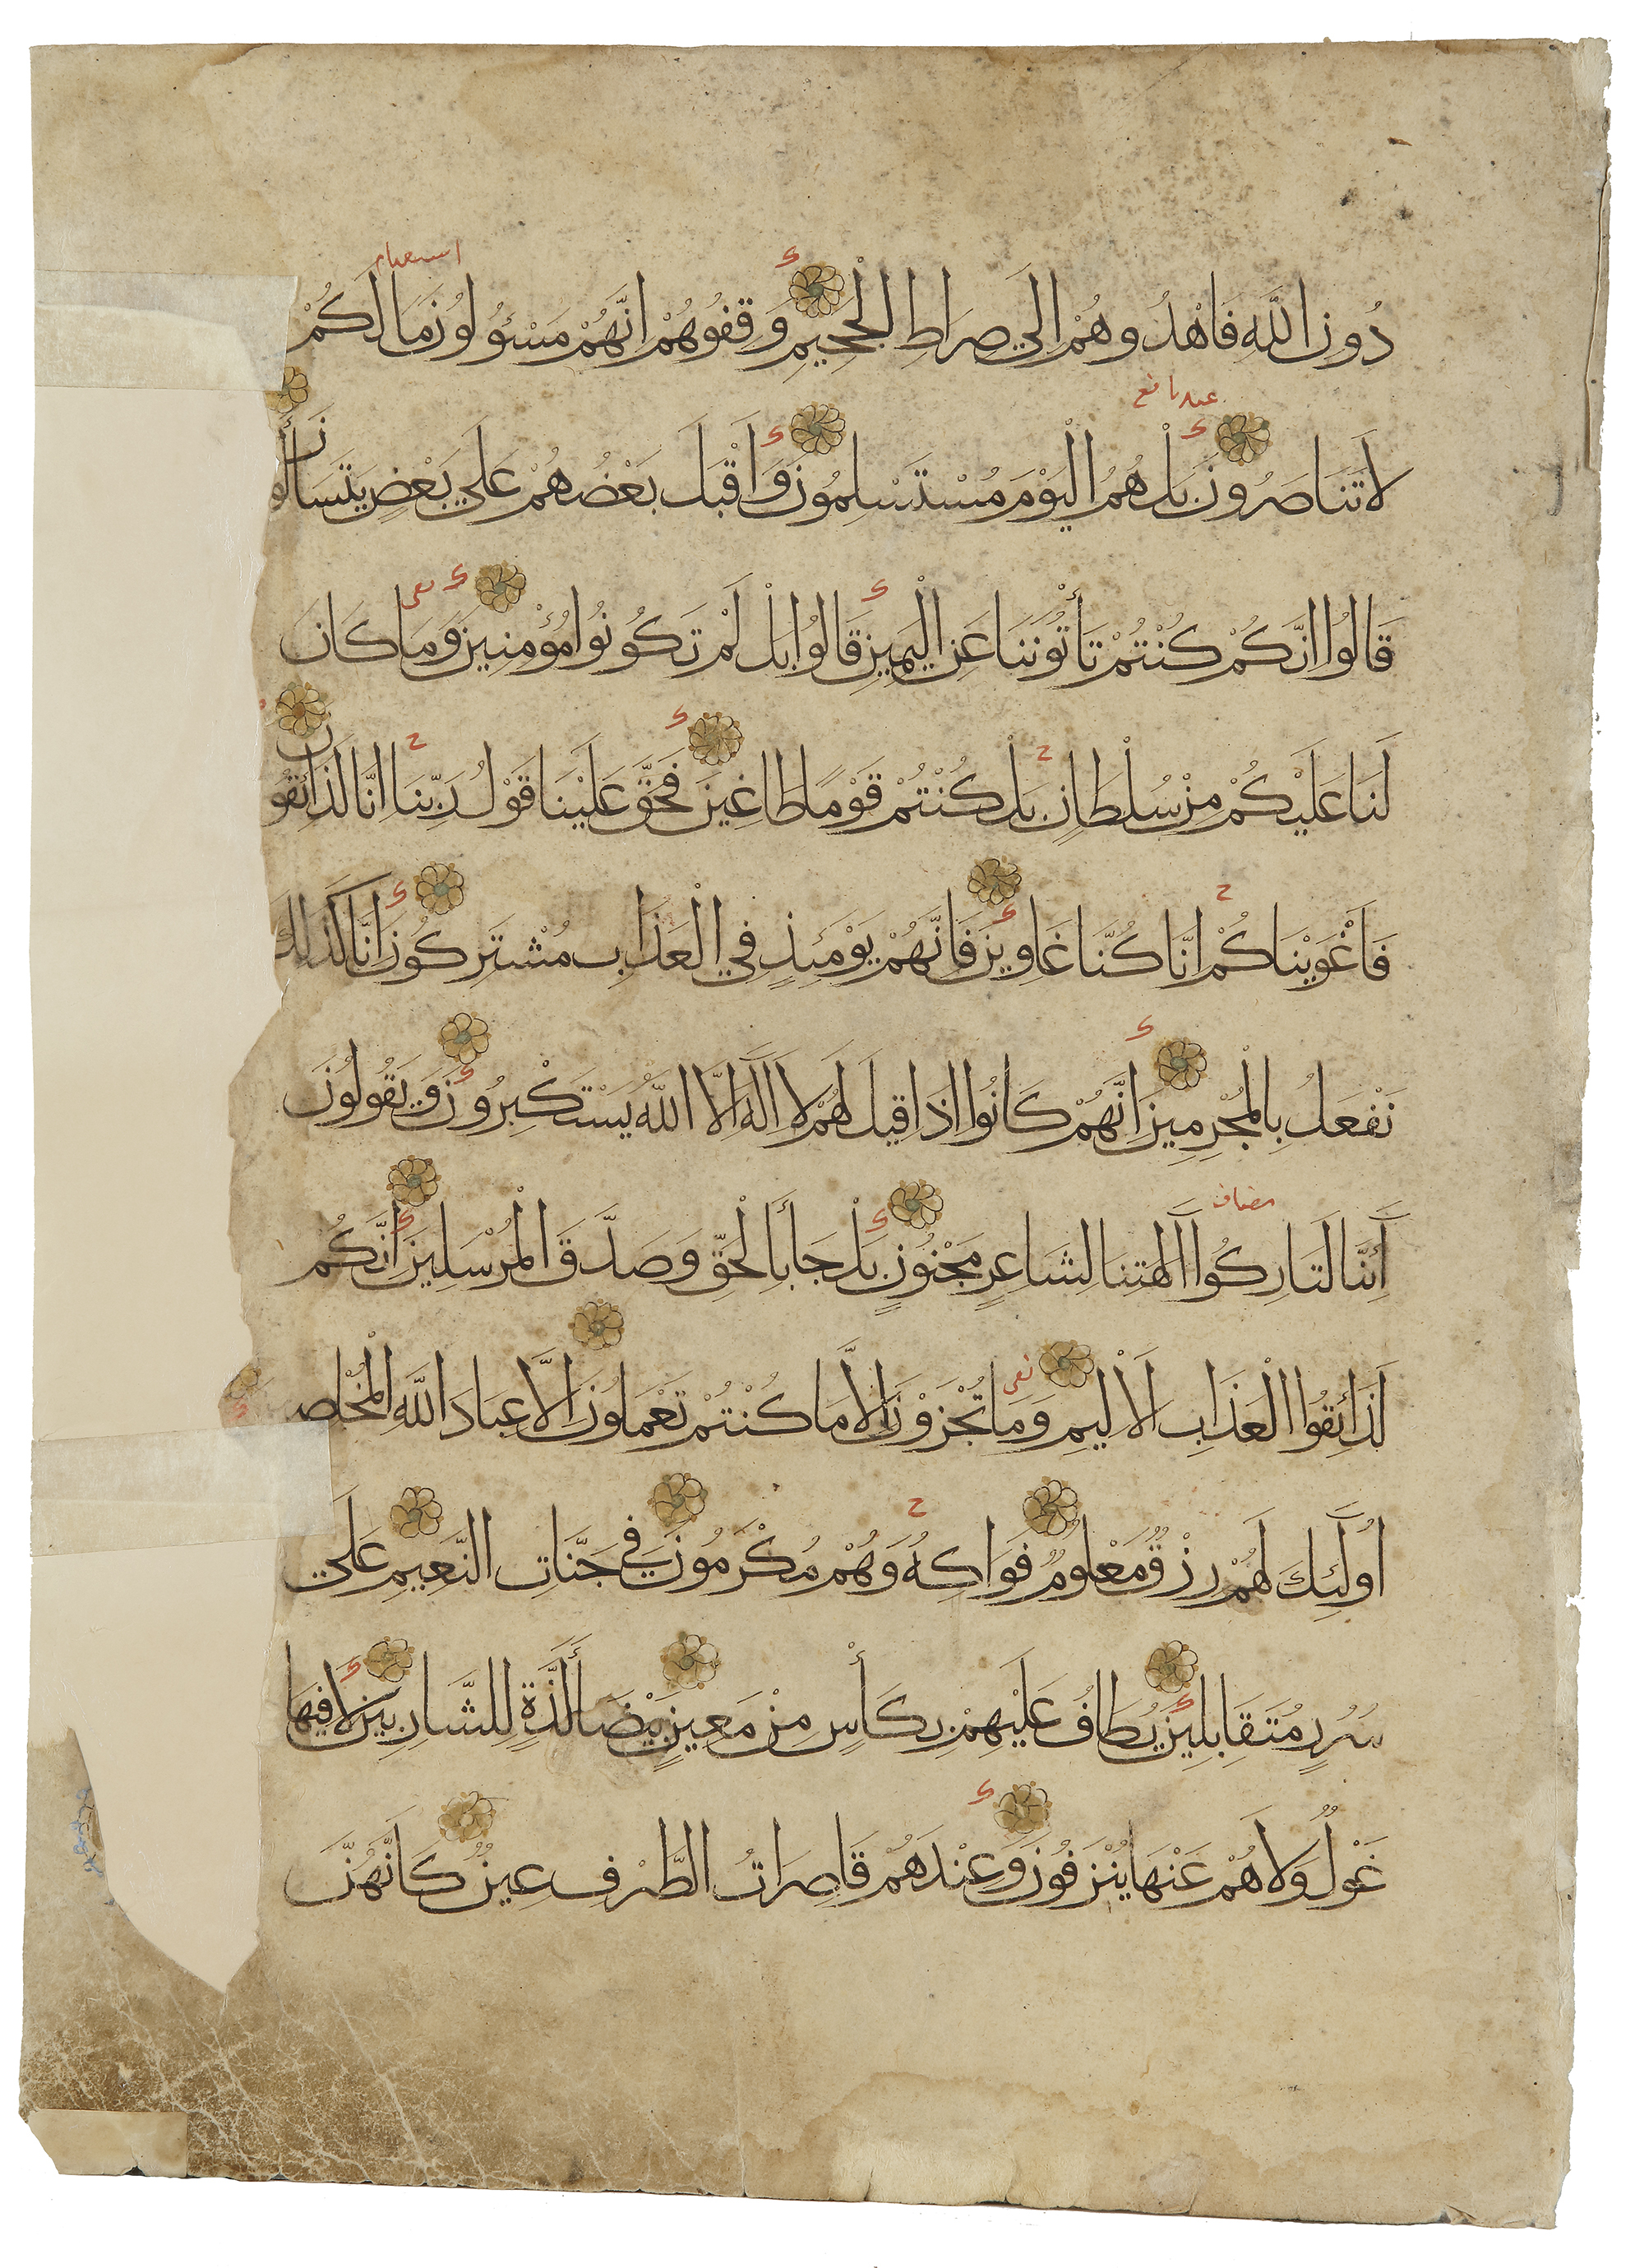 دُونِ اللَّهِ فَاهْدُوهُمْ اِلَي صِرَاطِ الْجَحِيمِ وَقِفُوهُمْ اِنَّهُمْ مَسْؤُولُونَ مَا لَكُمْ
لَا تَنَاصَرُونَ بَلْ هُمُ الْيَوْمَ مُسْتَسْلِمُونَ وَاَقْبَلَ بَعْضُهُمْ عَلَي بَعْضٍ يَتَسَاأَلُونَ
قَالُوا اِنَّكُمْ كُنْتُمْ تَأْتُونَنَا عَنِ الْيَمِينِ قَالُوا بَلْ لَمْ تَكُونُوا مُؤْمِنِينَ وَمَا كَانَ
لَنَا عَلَيْكُمْ مِنْ سُلْطَانٍ بَلْ كُنْتُمْ قَوْمًا طَاغِينَ فَحَقَّ عَلَيْنَا قَوْلُ رَبِّنَا اِنَّا لَذَائِقُونَ
فَاَغْوَيْنَاكُمْ اِنَّا كُنَّا غَاوِينَ فَاِنَّهُمْ يَوْمَئِذٍ فِي الْعَذَابِ مُشْتَرِكُونَ اِنَّا كَذَلِكَ
نَفْعَلُ بِالْمُجْرِمِينَ اِنَّهُمْ كَانُوا اِذَا قِيلَ لَهُمْ لَا اِلَهَ اِلَّا اللَّهُ يَسْتَكْبِرُونَ وَيَقُولُونَ
أَئِنَّا لَتَارِكُوا آلِهَتِنَا لِشَاعِرٍ مَجْنُونٍ بَلْ جَأَ بِالْحَقِّ وَصَدَّقَ الْمُرْسَلِينَ اِنَّكُمْ
لَذَائِقُوا الْعَذَابِ الْاَلِيمِ وَمَا تُجْزَوْنَ اِلَّا مَا كُنْتُمْ تَعْمَلُونَ اِلَّا عِبَادَ اللَّهِ الْمُخْلَصِ
اُولَئِكَ لَهُمْ رِزْقٌ مَعْلُومٌ فَوَاكِهُ وَهُمْ مُكْرَمُونَ فِي جَنَّاتِ النَّعِيمِ عَلَي
سُرُرٍ مُتَقَابِلِينَ يُطَافُ عَلَيْهِمْ بِكَأْسٍ مِنْ مَعِينٍ بَيْضَأَ لَذَّةٍ لِلشَّارِبِينَ لَا فِيهَا
غَوْلٌ وَلَا هُمْ عَنْهَا يُنْزَفُونَ وَعِنْدَهُمْ قَاصِرَاتُ الطَّرْفِ عِينٌ كَاَنَّهُنَّ